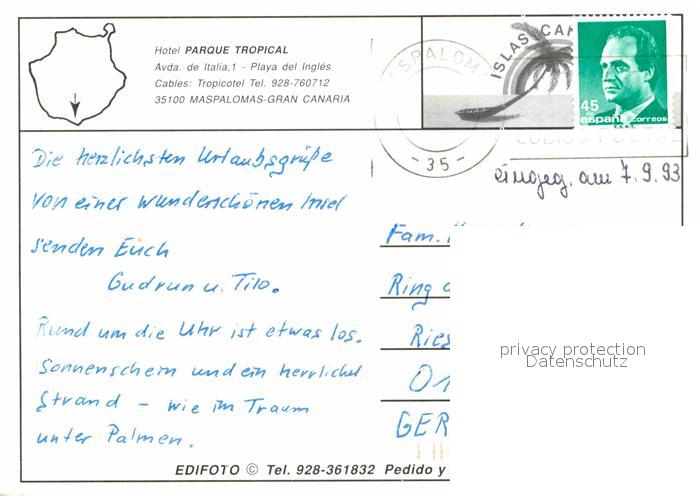 Hotel PARQUE TROPICAL
Avda. de Italia,1 - Playa del Inglés
Cables: Tropicotel Tel. 928-760712
35100 MASPALOMAS-GRAN CANARIA
SPALOM
ISLAS CAN
- 35 -
45
españa correos
eingeg. am 7.9.93
Die herzlichsten Urlaubsgrüße
von einer wunderschönen Insel
senden Euch
Gudrun u. Tilo.
Rund um die Uhr ist etwas los.
Sonnenschein und ein herrlicher
Strand - wie im Traum
unter Palmen.
Fam.
Ring
Ries
O1
GER
privacy protection
Datenschutz
EDIFOTO © Tel. 928-361832 Pedido y